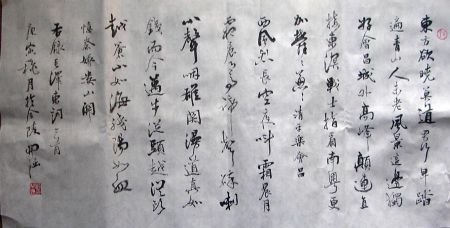 東方欲曉莫道君行早踏
遍青山人未老風景這邊獨
好會昌城外高峰顛連直
接東溟戰士指看南粤更
加鬱〻葱〻 清平樂會昌
西風烈長空雁叫霜晨月
霜晨月馬蹄聲碎喇
叭聲咽雄關漫道真如
鐵而今邁步從頭越從頭
越蒼山如海殘陽如血
憶秦娥婁山關
右録毛澤東詞二首
庚寅秋月於金陵